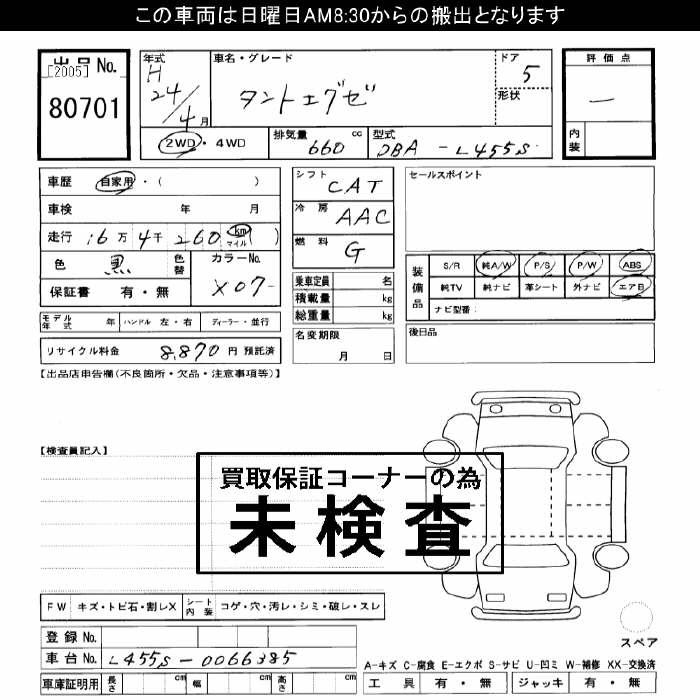 この車両は日曜日AM8:30からの搬出となります
出品No. [2005]
80701
年式 H 24/4月
車名・グレード タントエグゼ
ドア 5
形状
評価点 —
内装
2WD・4WD
排気量 660 cc
型式 DBA-L455S
車歴 自家用・( )
車検 年 月
走行 16万4千260 km マイル ( )
色 黒 色替 カラーNo. X07
保証書 有・無
シフト CAT
冷房 AAC
燃料 G
乗車定員 名
積載量 kg
総重量 kg
名変期限 月 日
セールスポイント
装備品
S/R 純A/W P/S P/W ABS
純TV 純ナビ 革シート 外ナビ エアB
ナビ型番:
後日品
モデル年式 年 ハンドル 左・右 ディーラー・並行
リサイクル料金 8,870 円 預託済
【出品店申告欄(不良箇所・欠品・注意事項等)】
【検査員記入】
買取保証コーナーの為
未検査
FW キズ・トビ石・割レX シート内装 コゲ・穴・汚レ・シミ・破レ・スレ
登録No.
車台No. L455S-0066385
車庫証明用 長さ cm 幅 cm 高さ cm
スペア
A-キズ C-腐食 E-エクボ S-サビ U-凹ミ W-補修 XX-交換済
工具 有・無 ジャッキ 有・無